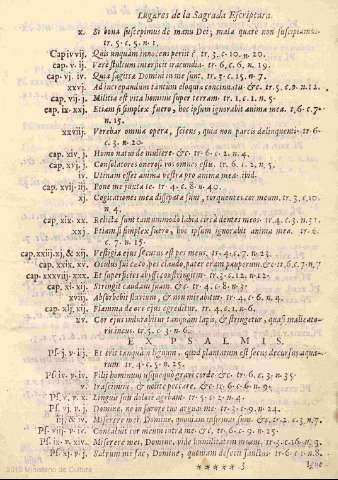 Lugares de la Sagrada Escriptura.
x. Si bona suscepimus de manu Dei; mala quare non suscipiamus?
tr. 5. c. 5. n. 1.
Cap iv vij. Quis unquam innocens periit? &c. tr. 3. c. 10. n. 20.
cap. v. ij. Verè stultum interficit iracundia. tr. 6. c. 6. n. 19.
cap. vj. iv. Quia sagittæ Domini in me sunt. tr. 3. c. 15. n. 7.
xxvj. Ad increpandum tantum eloquia concinnatis &c. tr. 5. c. 9. n. 12.
cap. vij. j. Militia est vita hominis super terram. tr. 1. c. 1. n. 5.
cap. ix. xxj. Etiam si simplex fuero, hoc ipsum ignorabit anima mea. t. 6. c. 7.
n. 15.
xxviij. Verebar omnia opera, sciens, quia non parcis delinquenti. tr. 6.
c. 3. n. 20.
cap. xiv. j. Homo natus de muliere &c. tr. 6. c. 2. n. 4.
cap. xvj. ij. Consolatores onerosi vos omnes estis. tr. 6. c. 2. n. 5.
iv. Utinam esset anima vestra pro anima mea. ibid.
cap. xvij. iij. Pone me juxta te. tr. 4. c. 8. n. 40.
xj. Cogitationes meæ dissipatæ sunt, torquentes cor meum. tr. 3. c. 10.
n. 4.
cap. xix. xx. Relicta sunt tantummodo labia circà dentes meos. tr. 4. c. 3. n. 31.
xxj. Etiam si simplex fuero, hoc ipsum ignorabit anima mea. tr. 2.
c. 7. n. 15.
cap. xxiij. xj. & xij. Vestigia ejus secutus est pes meus. tr. 4. c. 7. n. 23.
cap. xxix. xv. Oculus fui cæco, pes claudo, pater eram pauperum &c. tr. 6. c. 7. n. 7.
cap. xxxviij. xxx. Et superficies abyssi constringitur. tr. 3. c. 12. n. 12.
cap. xl. xij. Stringit caudam suam. &c. tr. 4. c. 8. n. 3.
xviij. Absorbebit fluvium, & non mirabitur. tr. 4. c. 6. n. 9.
cap. xlj. xij. Flamma de ore ejus egreditur. tr. 4. c. 1. n. 6.
xv. Cor ejus indurabitur tanquam lapis, & stringetur, quasi malleato-
ris incus. tr. 5. c. 3. n. 6.
EX PSALMIS.
Ps. j. v. iij. Et erit tanquam lignum, quod plantatum est secus decursus aqua-
rum. tr. 4. c. 5. n. 25.
Ps. iv. v. iv. Filii hominum usquequo gravi corde &c. tr. 6. c. 3. n. 35.
v. Irascimini, & nolite peccare, &c. tr. 6. c. 6. n. 9.
Ps. v. v. x. Linguis suis dolose agebant. tr. 5. c. 2. n. 4.
Ps. vj. v. j. Domine, ne in furore tuo arguas me. tr. 3. c. 9. n. 24.
Ps. ij. & iv. Miserere mei Domine, quoniam infirmus sum, &c. tr. 2. c. 3. n. 7.
Ps. viij. v. iv. Concaluit cor meum intrà me, &c. tr. 5. c. 9. n. 25.
Ps. ix. v. xiv. Miserere mei, Domine, vide humilitatem meam. tr. 3. c. 16. n. 3.
Ps. xj. v. j. Salvum me fac, Domine, quoniam defecit sanctus. tr. 6. c. 1. n. 8.
***** 3 Igne
2010 Ministerio de Cultura